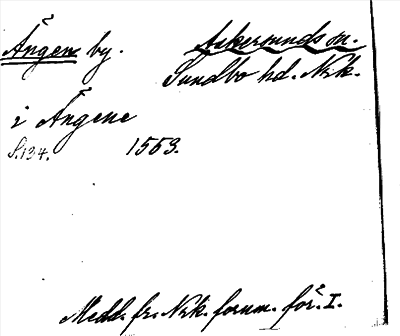 Ängen by. Askersunds sn.
Sundbo hd. Nrk.
i Ängene
S. 134. 1553.
Medd. fr. Nrk. fornm. för. I.